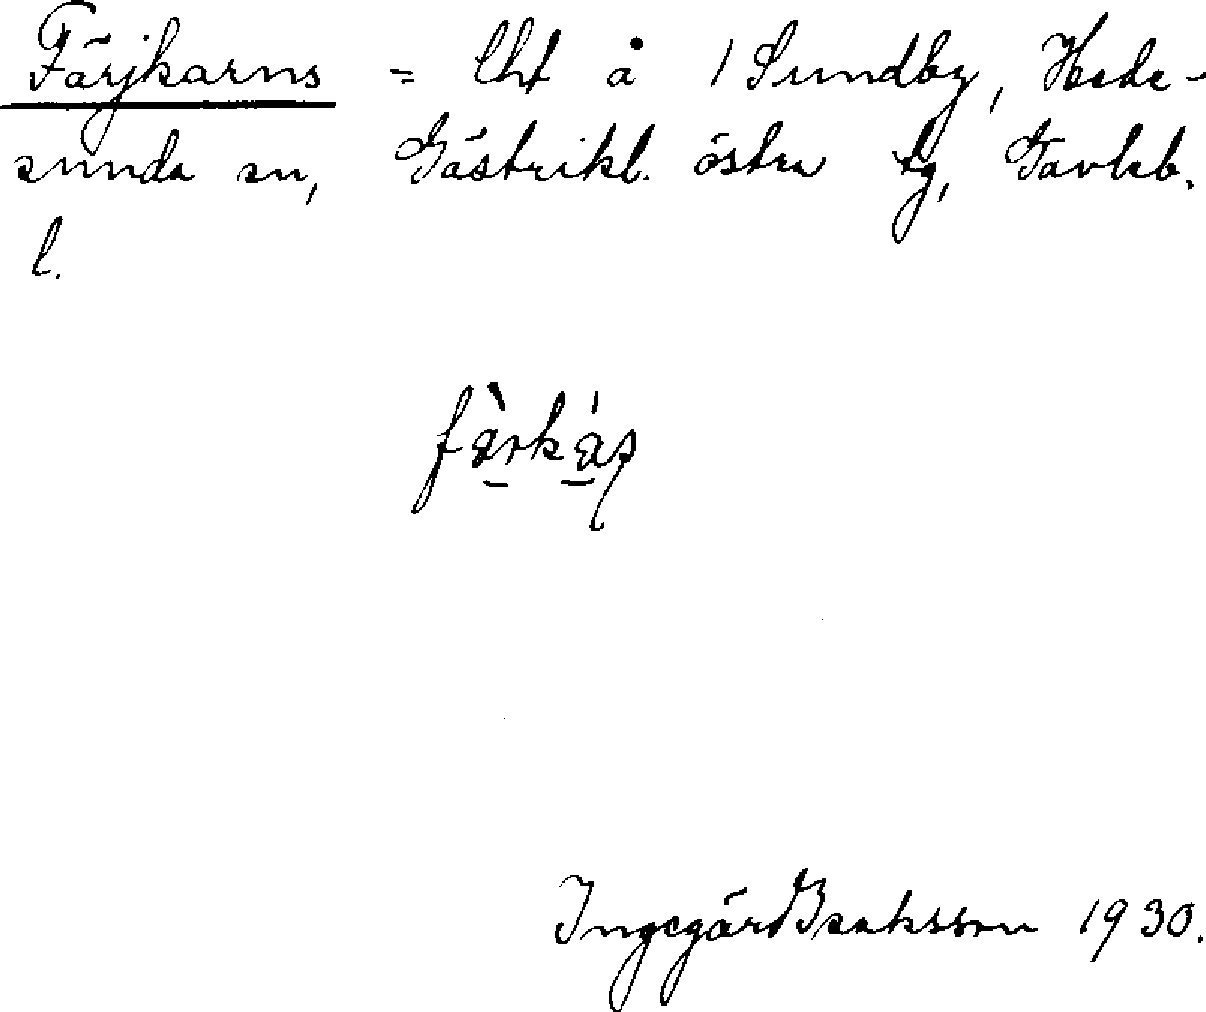 Färjkarns = lht å 1 Sundby, Hede-
sunda sn, Gästrikl. östra tg, Gävleb.
l.
Ingegärd Isaksson 1930.